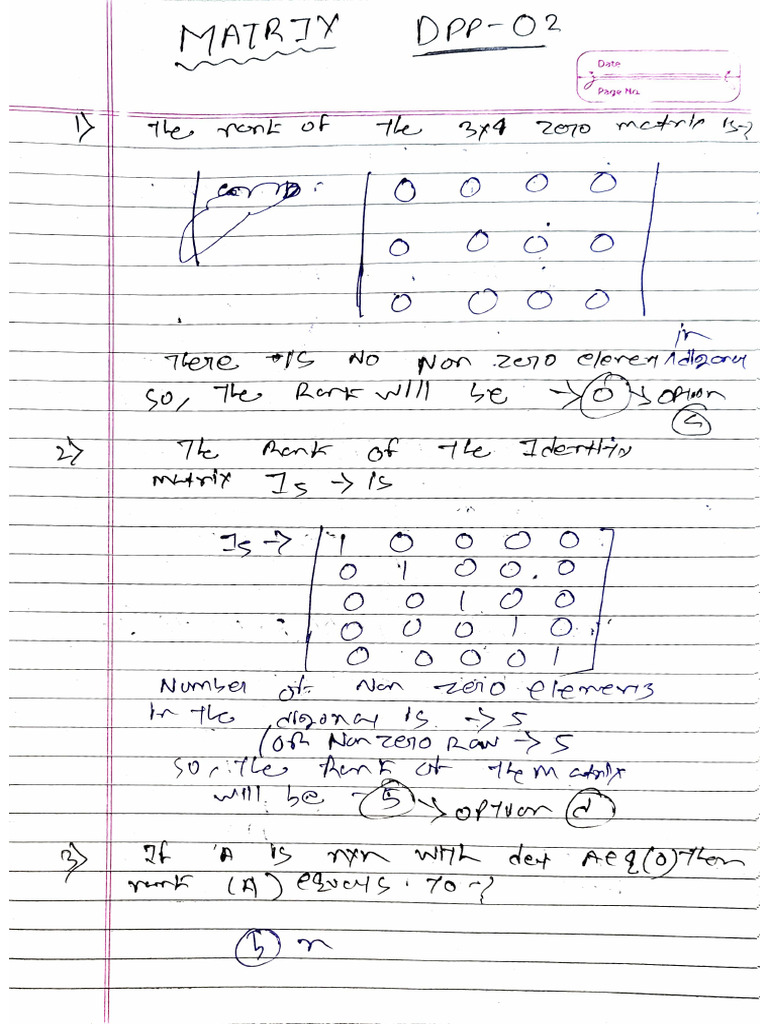 MATRIX DPP-02
Date
Page No.
1) The rank of the 3x4 zero matrix is-?
0 0 0 0
0 0 0 0
0 0 0 0
There is no Non zero elemen in digonal
so, The Rank will be → 0 → option
2) The Rank of the Identity
matrix I5 → is
I5 → 1 0 0 0 0
0 1 0 0 0
0 0 1 0 0
0 0 0 1 0
0 0 0 0 1
Number of Non zero elements
in the digonal is → 5
(or Non zero Raw → 5
so, the Rank of the matrix
will be → 5 → option d
3) If A is nxn with det A eq(0) then
rank (A) equals to -?
b n